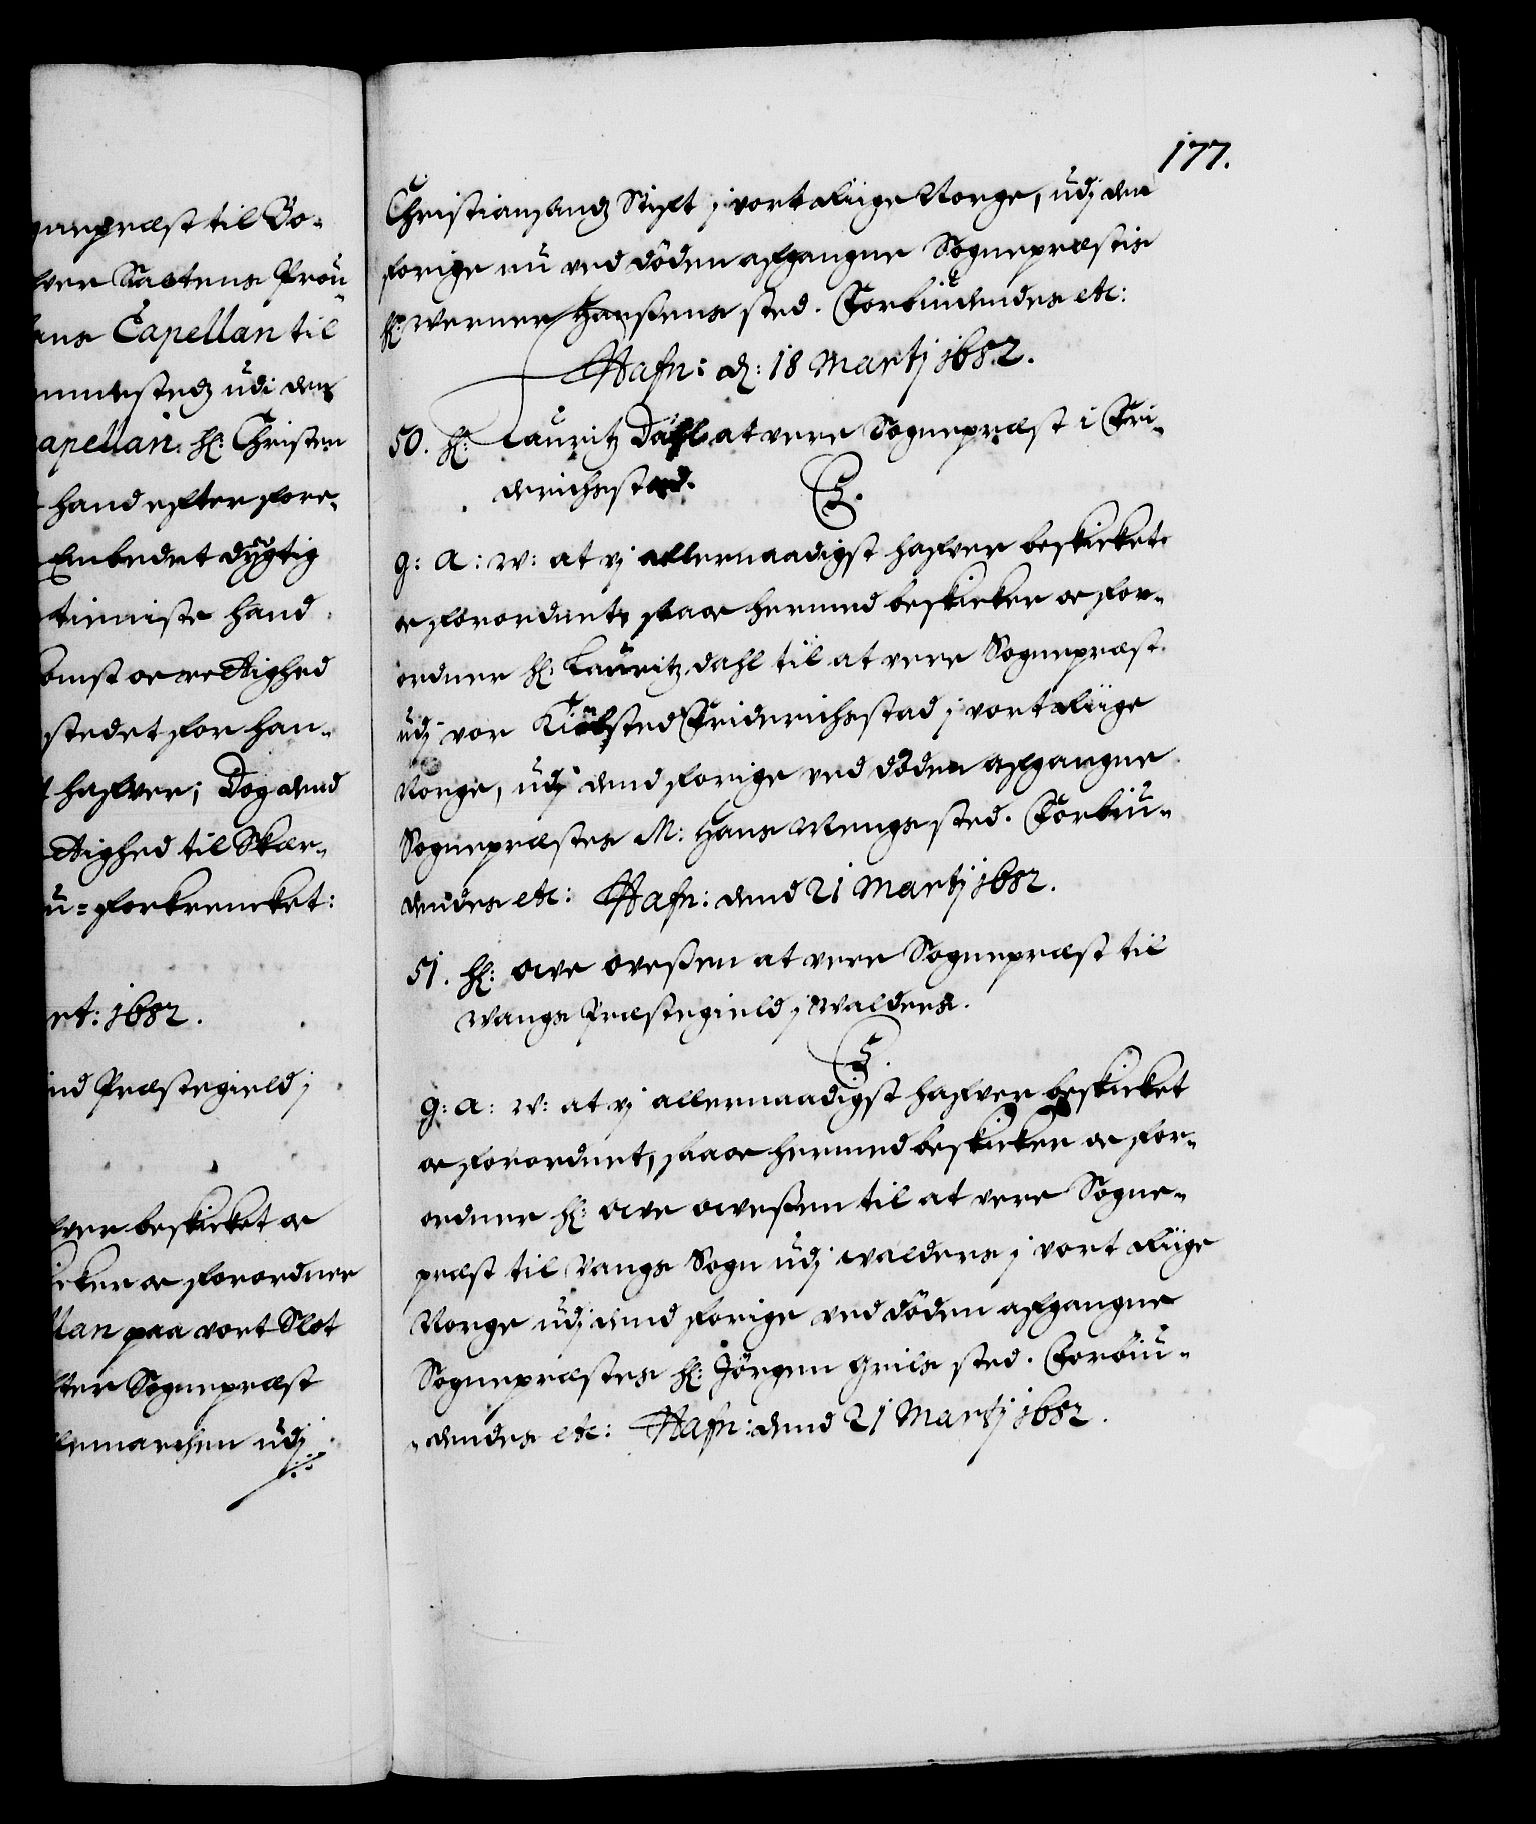 177.
Christiansandz Stift j vort Riige Norge, udj den
forige nu ved döden afgangne Sogneprestis
hr: Werner Hanßens sted. Forbiudendes etc:
Hafn: d: 18 Martj 1682.
50. hr: Lauritz Dahl at vere Sogneprest i Fri-
derichsstad.
C5.
g: A: w: at vj allernaadigst hafver beskicket
oc forordnet, saa oc hermed beskicker oc for-
ordner hr: Lauritz Dahl til at vere Sogneprest
udj vor Kiöbsted Friderichsstad j vort Riige
Norge, udj dend forige ved döden afgangne
Sogneprestes M: Hans Mengs sted. Forbiu-
dendes etc: Hafn: dend 21 Martj 1682.
51. hr: Owe Oveßen at vere Sogneprest til
Wangs Prestegield j Walders.
C5.
g: A: w: at vj allernaadigst hafver beskicket
oc forordnet, saa oc hermed beskicker oc for-
ordner hr: Owe Oweßen til at vere Sogne-
prest til Vangs Sogn udj Walders j vort Riige
Norge udj dend forige ved döden afgangne
Sogneprestes hr: Jörgen Griis sted. Forbiu-
dendes etc: Hafn: dend 21 Martj 1682.
prest til Bo-
Saltens Prou-
ans Capellan til
udi den
apellan hr: Christen
hand efter fore-
Embedet dygtig
tienniste hand
komst oc rettighed
stedet for han-
hafver; Dog dend
-ttighed til Skar-
u-forkrencket:
et: 1682.
ind Prestegield j
fver beskicket oc
icker oc forordner
llan paa vort Slot
Sogneprest
lemarchen udj